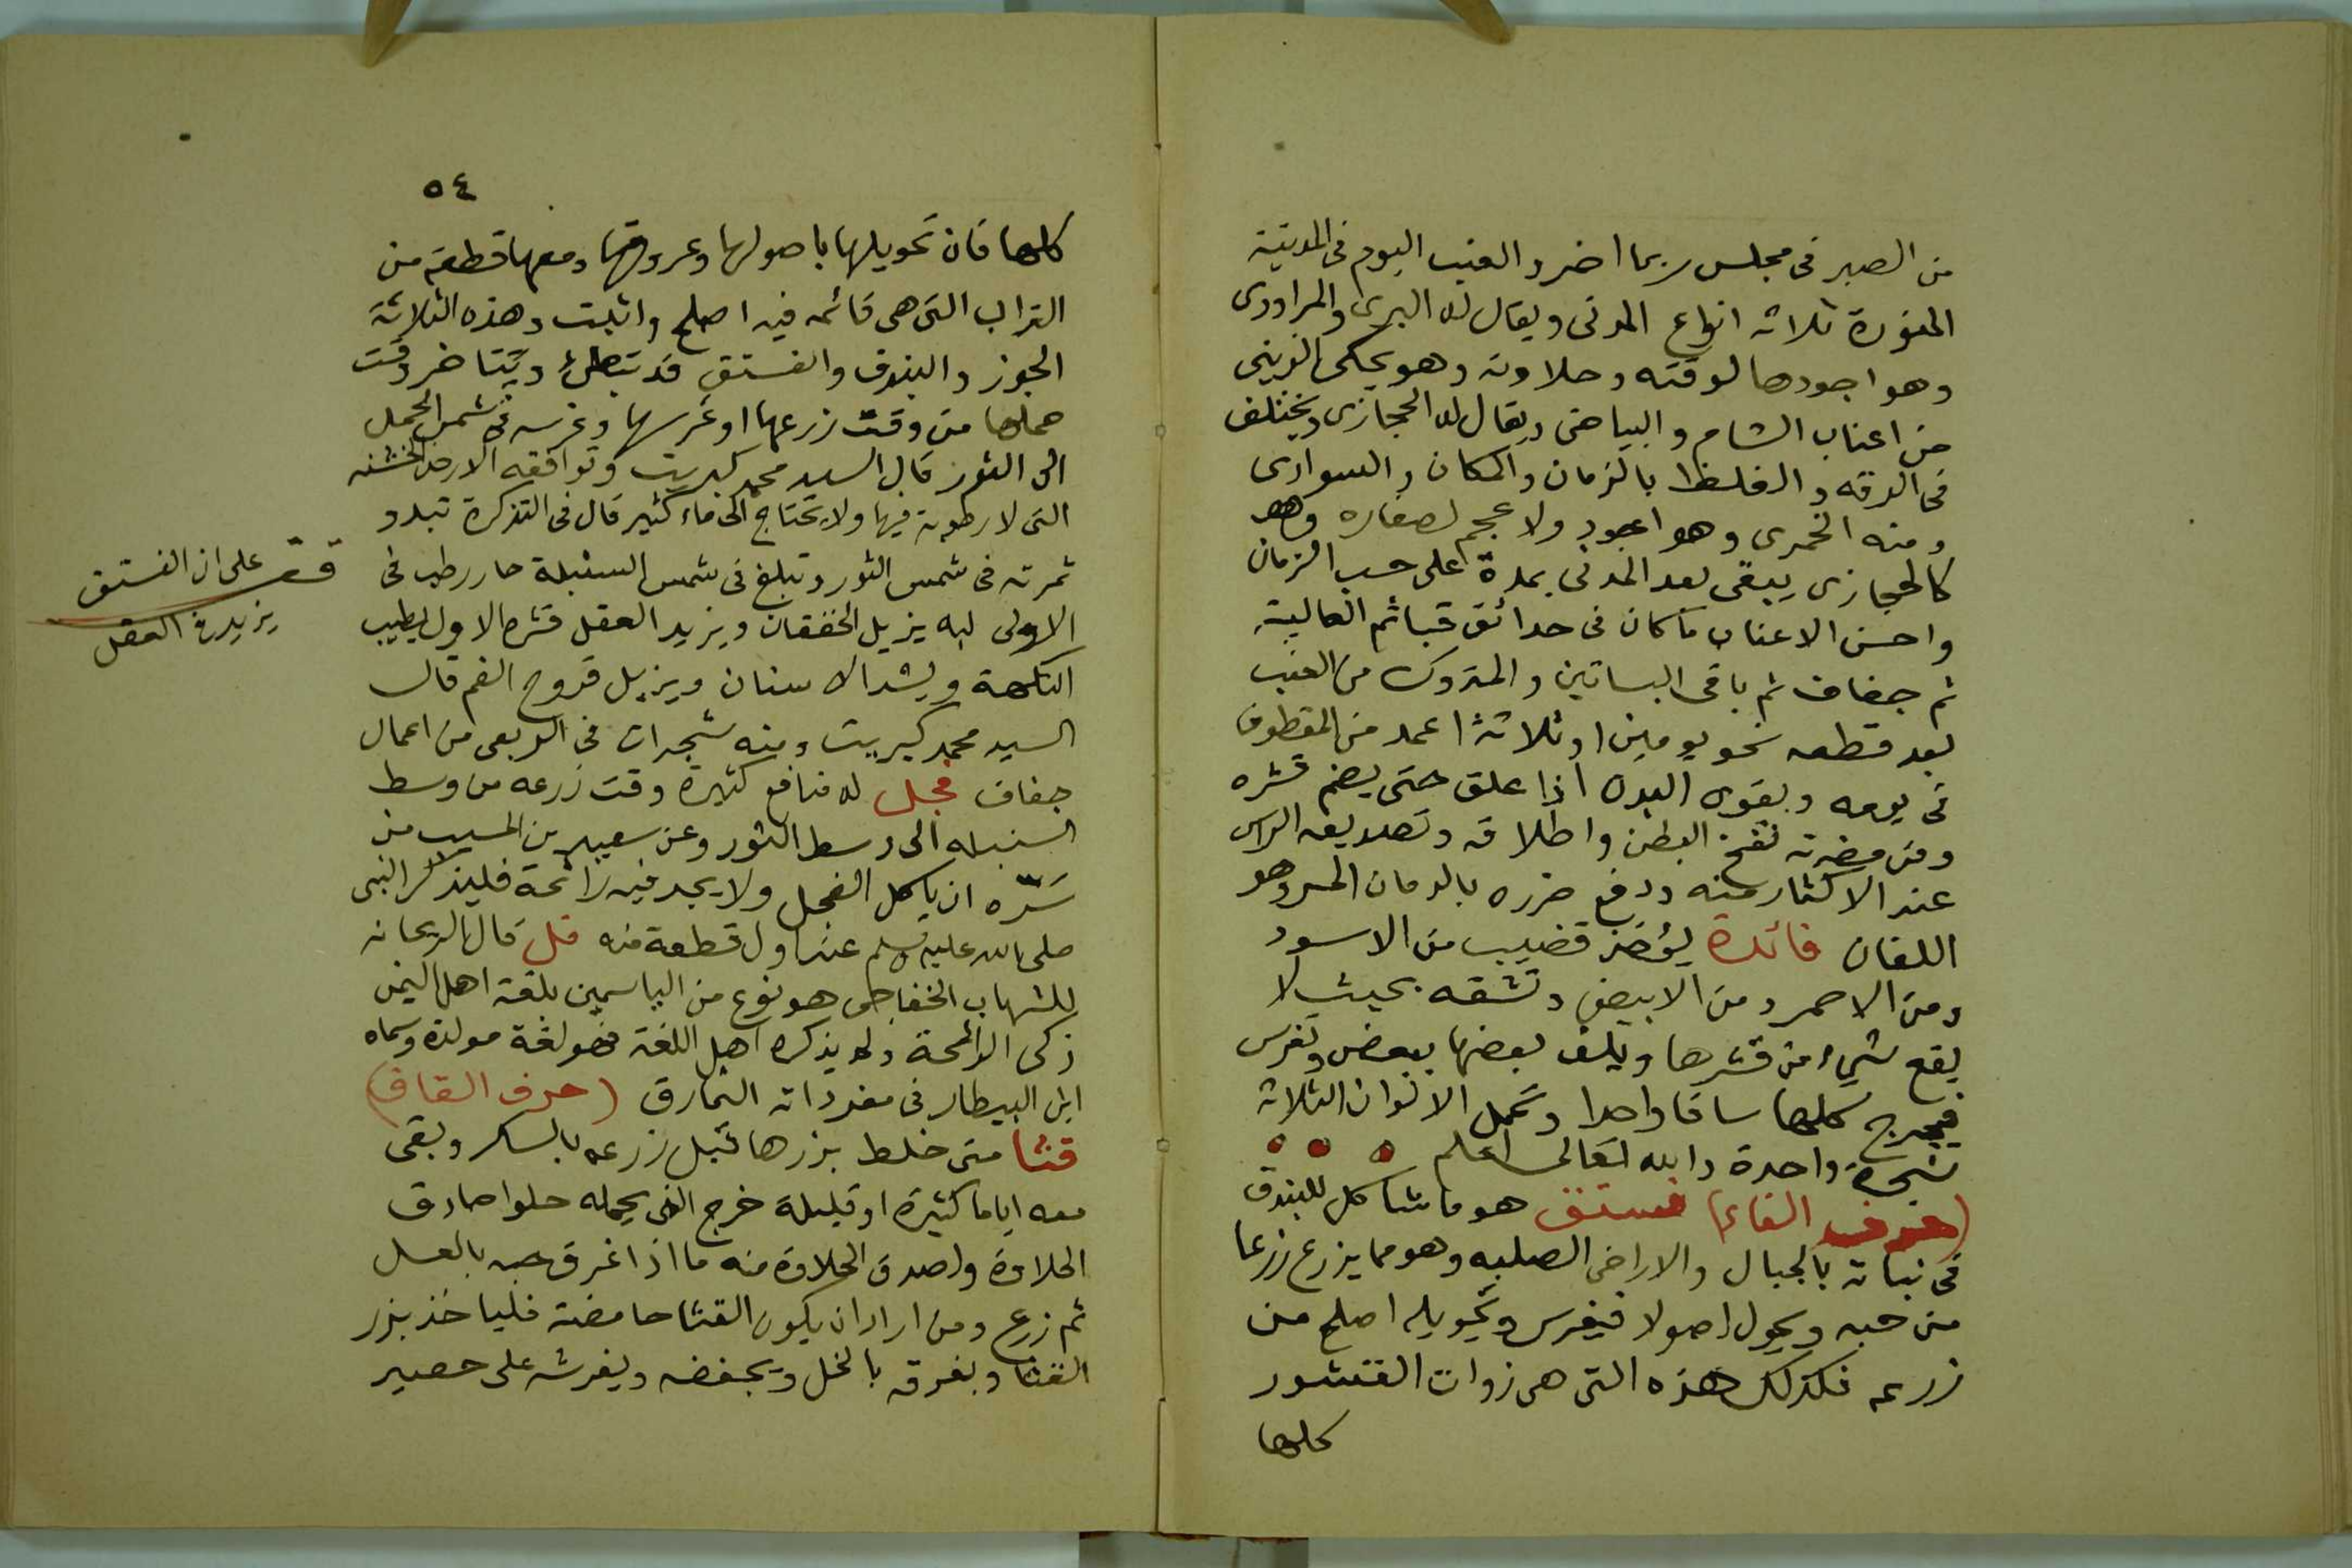 من الصبر فى مجلس ربما اضر والعنب اليوم فى المدينة
المنورة ثلاثه انواع المدنى ويقال له البرى والمراودى
وهو اجودها لوقته وحلاوته وهو يحكى الزينى
من اعناب الشام والبياضى ويقال له الحجازى ويختلف
فى الرقه والغلظ بالزمان والمكان والسوادى
ومنه الخمرى وهو اجود ولا عجم لصغاره وهو
كالحجازى يبقى بعد المدنى بمدة على حسب الزمان
واحسن الاعناب ما كان فى حدائق قبا ثم العالية
ثم جفاف ثم باقى البساتين والمتروك من العنب
بعد قطعه نحو يومين او ثلاثة احمد من المقطوف
فى يومه ويقوى البدن اذا علق حتى يضم قشره
ومن مضرته نفخ البطن واطلاقه وتصديعه الراس
عند الاكثار منه ودفع ضرره بالرمان المز وهو
اللفان فائدة يؤخذ قضيب من الاسود
ومن الاحمر ومن الابيض وتشقه بحيث لا
يقع شيء من قشرها ويلف بعضها ببعض وتغرس
فيخرج كلها ساقا واحدا وتحمل الالوان الثلاثة
شجرة واحدة والله تعالى اعلم
(حرف الفاء) فستق هو ما شاكل للبندق
فى نباته بالجبال والاراضى الصلبه وهو مما يزرع زرعا
من حبه ويحول اصولا فيغرس وتحويله اصلح من
زرعه فكذلك هذه التى هى ذوات القشور
كلها
٥٤
كلها فان تحويلها باصولها وعروقها ومعها قطعة من
التراب التى هى قائمه فيه اصلح واثبت وهذه الثلاثة
الجوز والبندق والفستق قد تبطئ ويتاخر وقت
حملها من وقت زرعها او غرسها وغرسه فى شمس الحمل
الى الثور قال السيد محمد كبريت وتوافقه الارض الخشنه
التى لا رطوبة فيها ولا يحتاج الى ماء كثير قال فى التذكرة تبدو
ثمرته فى شمس الثور وتبلغ فى شمس السنبلة حار رطب فى
الاولى لبه يزيل الخفقان ويزيد العقل قشره الاول يطيب
النكهة ويشد الاسنان ويزيل قروح الفم قال
السيد محمد كبريت ومنه شجرات فى الربعى من اعمال
جفاف فجل له منافع كثيرة وقت زرعه من وسط
السنبله الى وسط الثور وعن سعيد بن المسيب من
سَرّه ان ياكل الفجل ولا يجد فيه رائحة فليذكر النبى
صلى الله عليه وسلم عند اول قطعة منه فل قال الريحانه
للشهاب الخفاجى هو نوع من الياسمين بلغة اهل اليمن
زكى الرائحة ولم يذكره اهل اللغة فهو لغة مولدة وسماه
ابن البيطار فى مفرداته النمارق (حرف القاف)
قثا متى خلط بزرها قبل زرعه بالسكر وبقى
معه اياما كثيرة او قليلة خرج الذى يحمله حلوا صادق
الحلاوة واصدق الحلاوة منه ما اذا غرق حبه بالعسل
ثم زرع ومن اراد ان يكون القثا حامضة فلياخذ بزر
القثا ويغرقه بالخل ويجففه ويفرشه على حصير
قف على ان الفستق
يزيد فى العقل